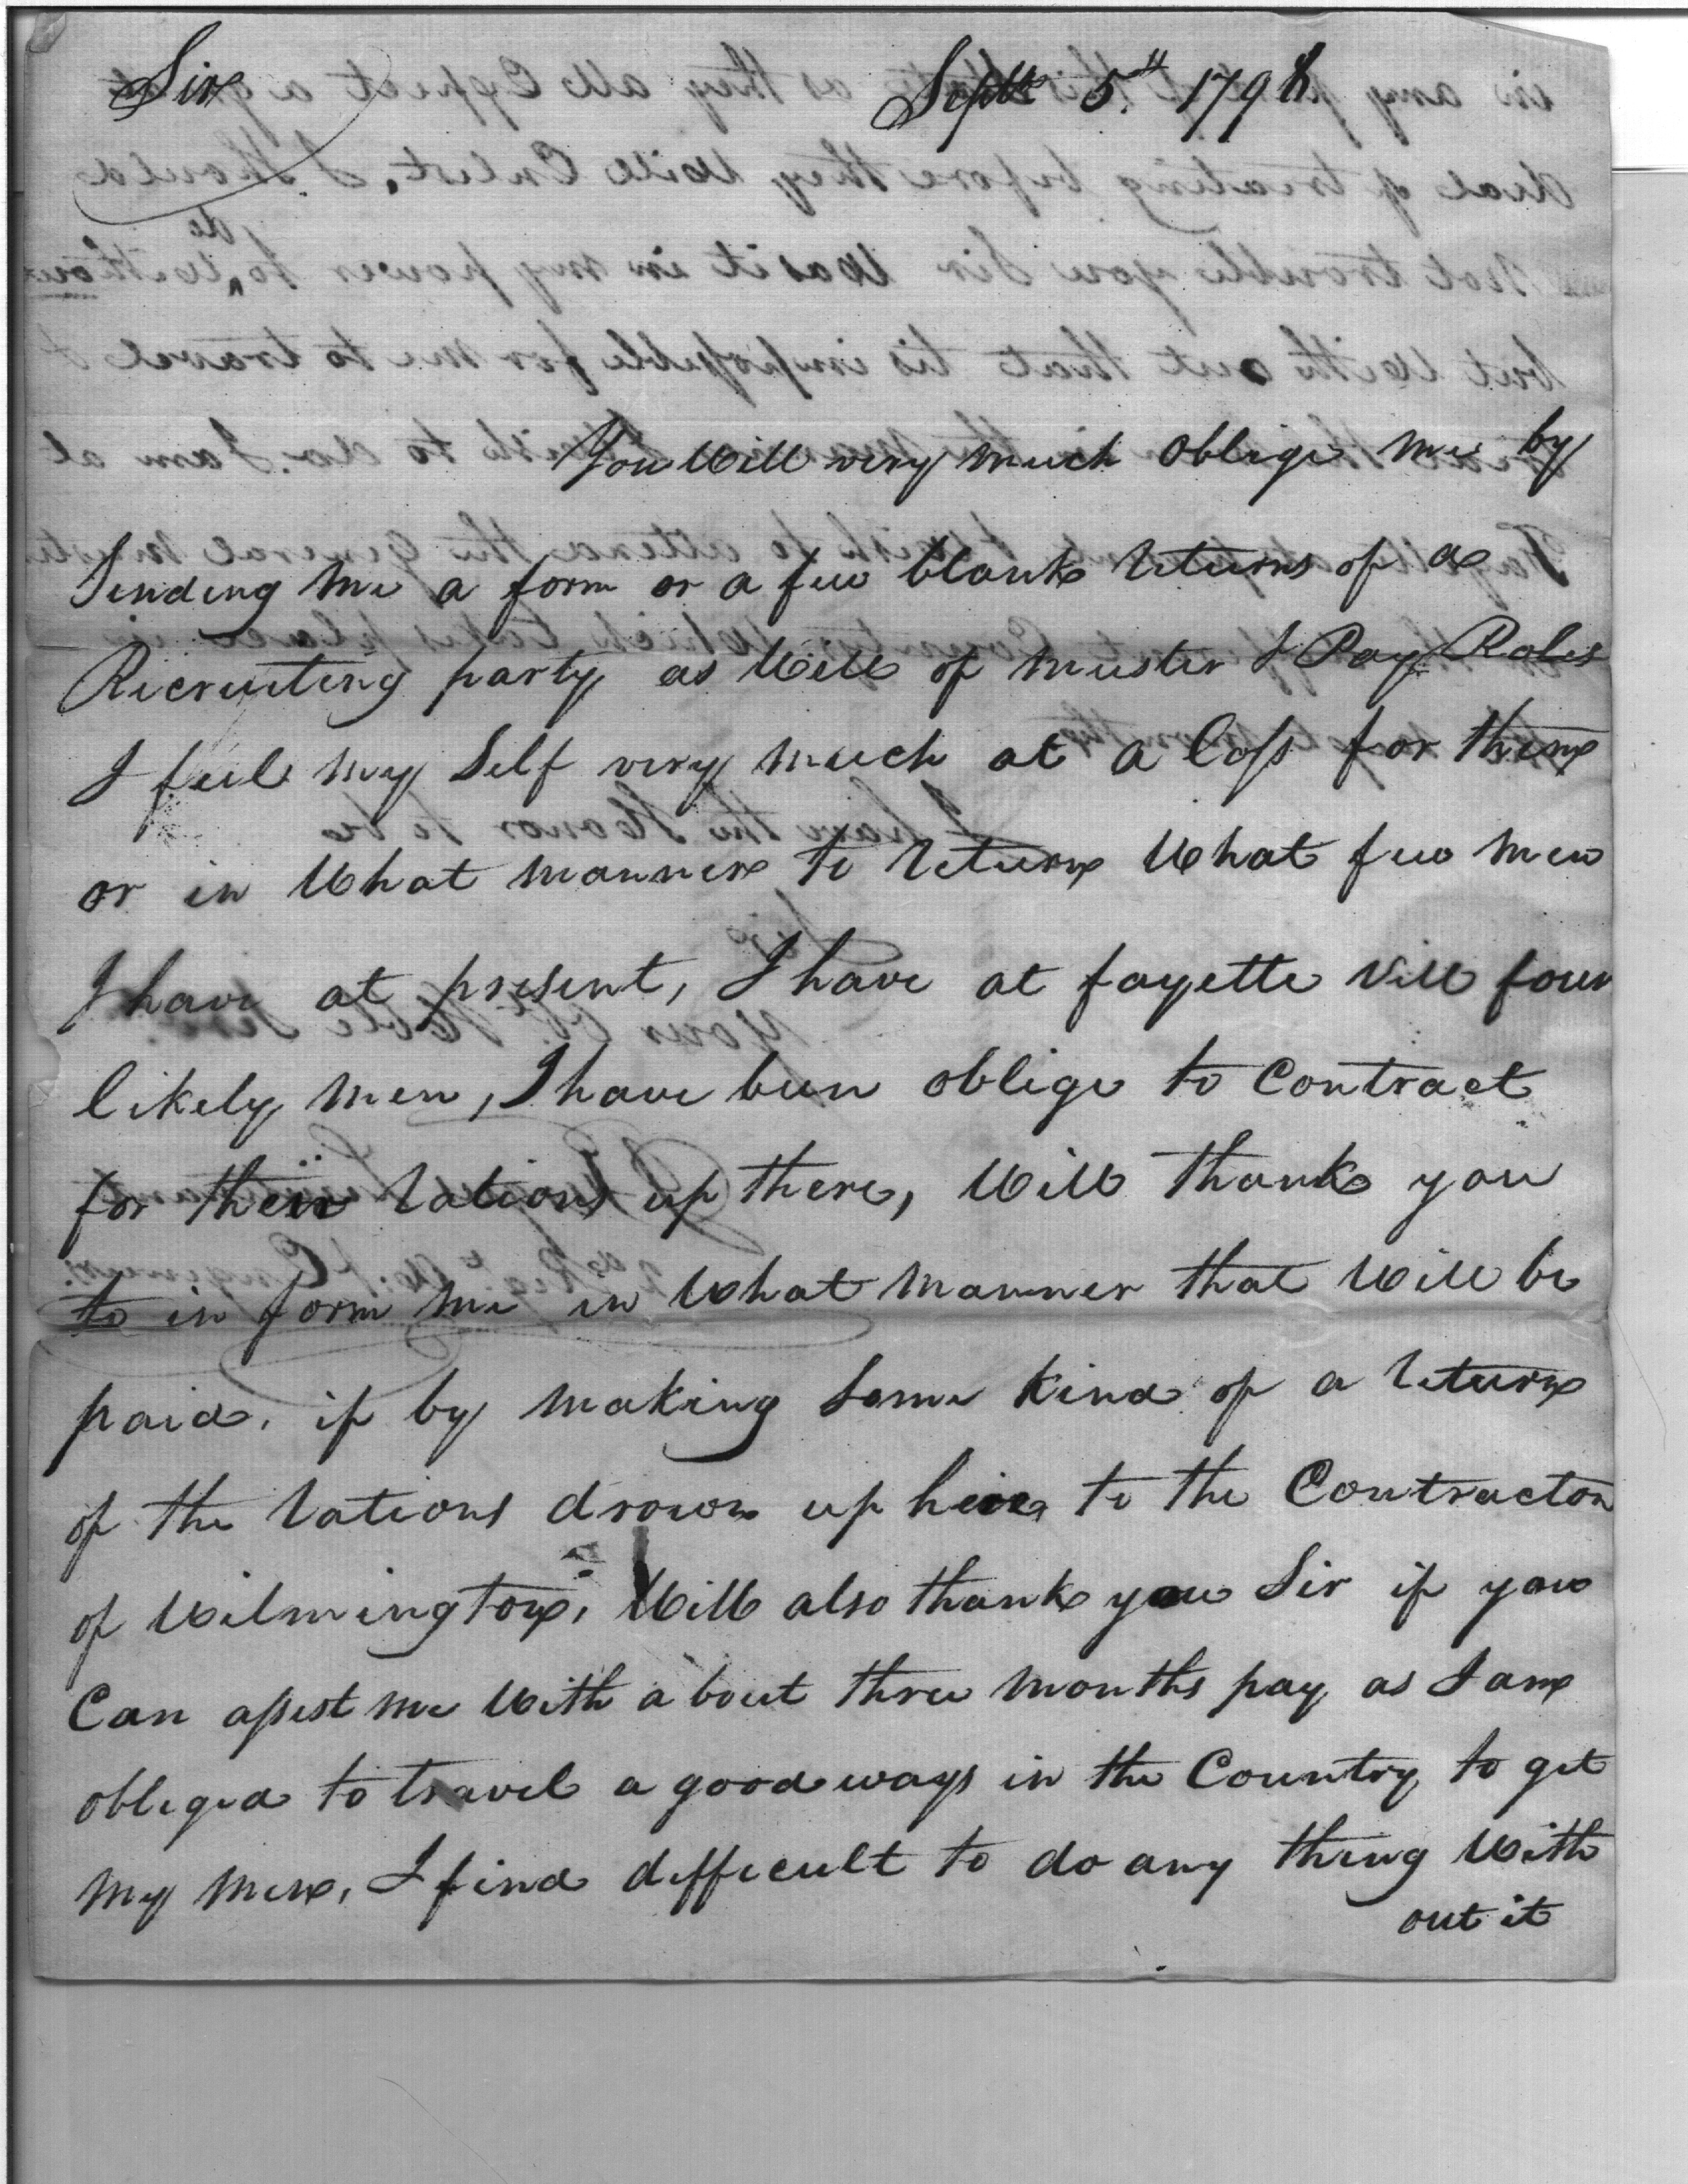 Sir Septr 5th 1798
You Will very much oblige me by
Sending me a form or a few blank returns of a
Recruiting party as Well of muster & Pay Roles
I feel my Self very much at a loss for them
or in What manner to return What few men
I have at present, I have at fayette vill four
likely men, I have been oblige to Contract
for their rations up there, Will thank you
to in form me in What manner that Will be
paid. if by making Some kind of a return
of the rations drawn up here to the Contractor
of Wilmington, Will also thank you Sir if you
Can assist me With a bout three months pay as I am
obliged to travel a good ways in the Country to get
my men, I find difficult to do any thing With
out it